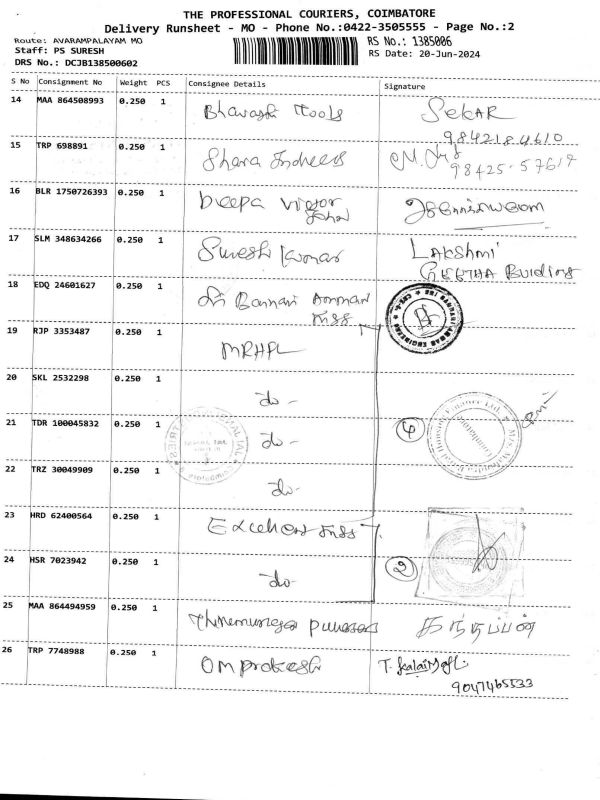 THE PROFESSIONAL COURIERS, COIMBATORE
Delivery Runsheet - MO - Phone No.:0422-3505555 - Page No.:2
Route: AVARAMPALAYAM MO
Staff: PS SURESH
DRS No.: DCJB138500602
RS No.: 1385006
RS Date: 20-Jun-2024
S No Consignment No Weight PCS Consignee Details Signature
14 MAA 864508993 0.250 1 Tools SekAR
9842184610
15 TRP 698891 0.250 1
16 BLR 1750726393 0.250 1 Deepa Victor
17 SLM 348634266 0.250 1 Suresh Kumar LAKSHMI
GEETHA Building
18 EDQ 24601627 0.250 1 Sri Bannari Amman
19 RJP 3353487 0.250 1 MRHFL
20 SKL 2532298 0.250 1 do -
21 TDR 100045832 0.250 1 do - 4
22 TRZ 30049909 0.250 1 do -
23 HRD 62400564 0.250 1
24 HSR 7023942 0.250 1 do- 2
25 MAA 864494959 0.250 1
26 TRP 7748988 0.250 1 Omprakash
9047465533